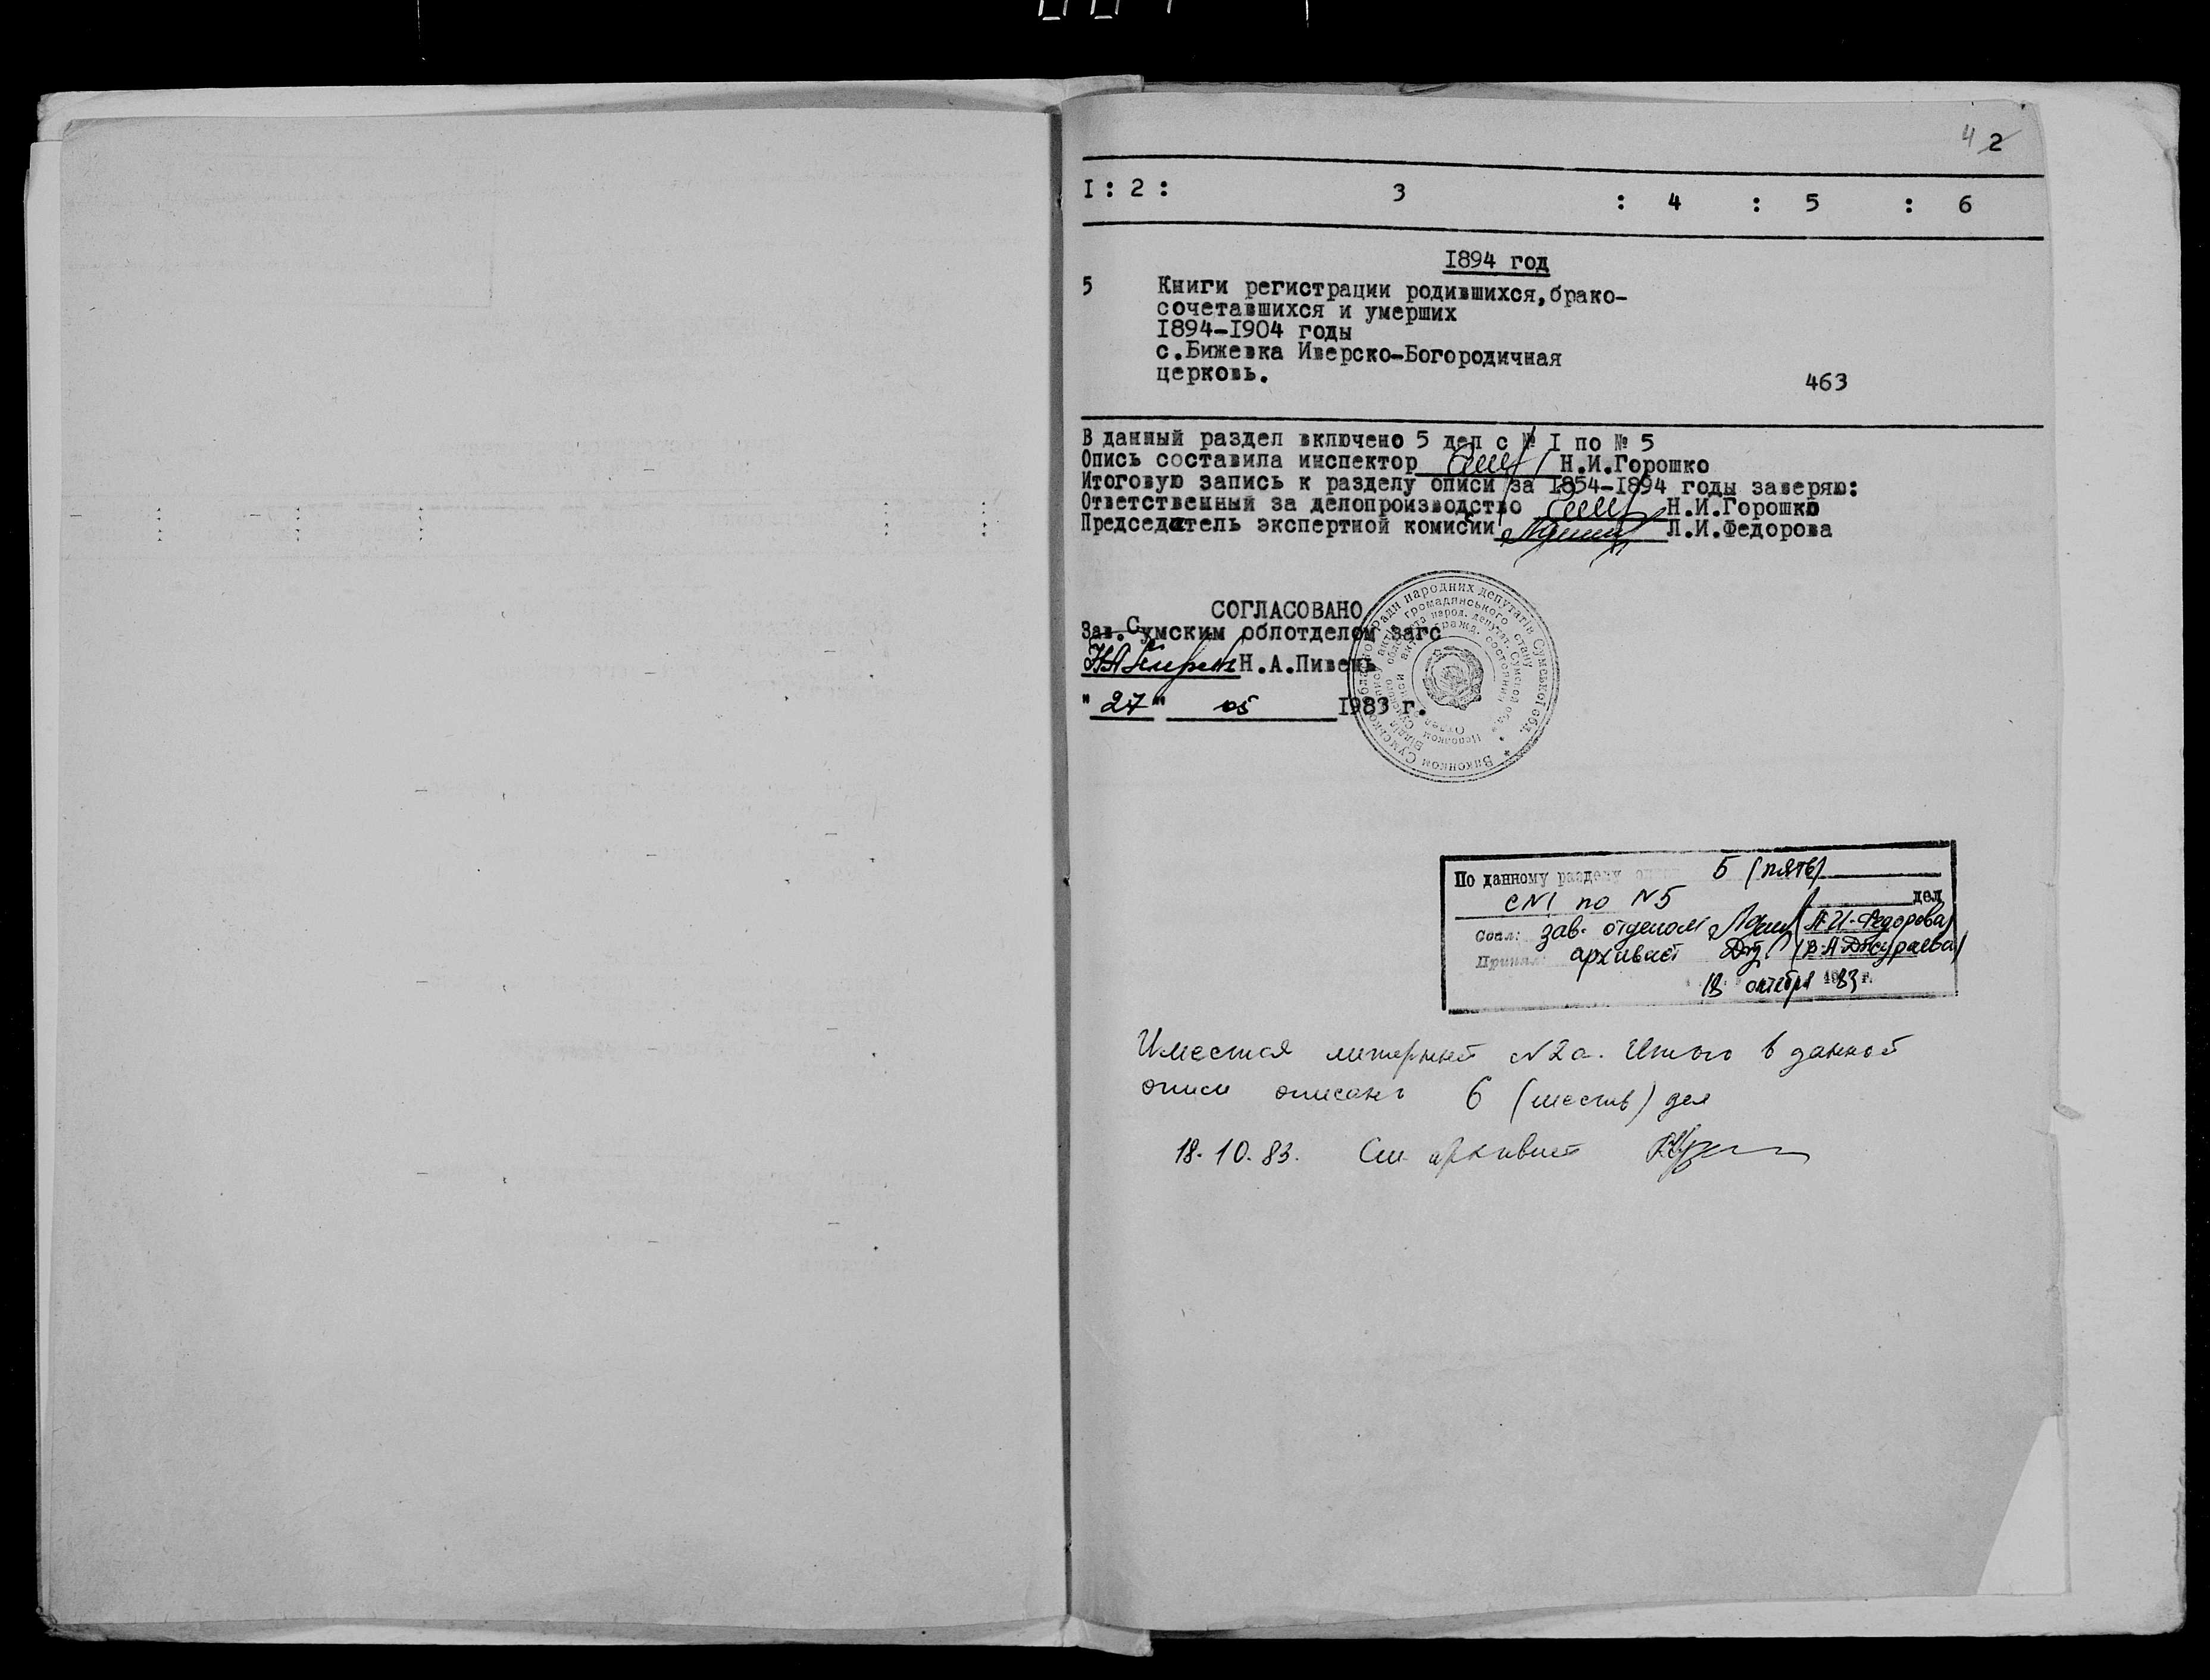 4 2
I : 2 : 3 : 4 : 5 : 6
1894 год
5 Книги регистрации родившихся, брако-
сочетавшихся и умерших
1894-1904 годы
с.Бижевка Иверско-Богородичная
церковь.
463
В данный раздел включено 5 дел с № I по № 5
Опись составила инспектор Н.И.Горошко
Итоговую запись к разделу описи за 1854-1894 годы заверяю:
Ответственный за делопроизводство Н.И.Горошко
Председатель экспертной комисии Л.И.Федорова
СОГЛАСОВАНО
Зав. Сумским облотделом загс
Н.А.Пивень
"27" 05 1983 г.
Виконком Сумської обласної Ради народних депутатів Сумської обл.
По данному разделу 5 (пять)
с N1 по N5 дел
Сдал: зав. отделом (Л.И. Федорова)
Принял: архивист (В.А. Джураева)
18 октября 1983 г.
Имеется литерный N 2а. Итого в данной
описи описано 6 (шесть) дел
18.10.83. Ст. архивист